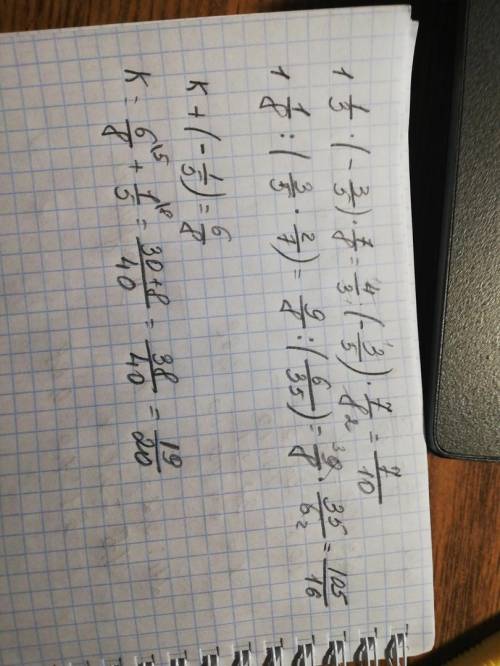 1 1/3 · (- 3/5) · 7/8 = 4/3 · (- 3/5) · 7/8 2 = 7/10
1 1/8 : ( 3/5 · 2/7 ) = 9/8 : ( 6/35 ) = 3 9/8 · 35/6 2 = 105/16
K + (- 1/5 ) = 6/8
K = 6/8 \5 + 1/5 \8 = 30+8/40 = 38/40 = 19/20